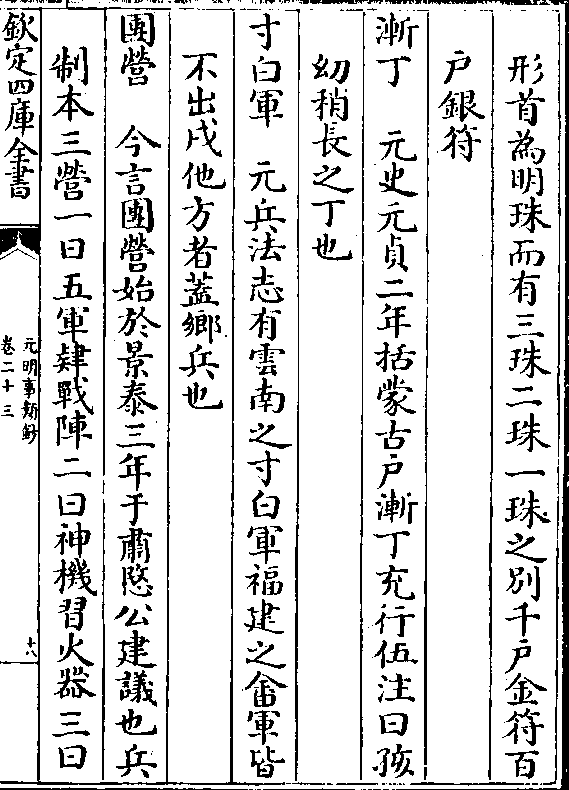 形首為明珠而有三珠二珠一珠之別千户金符百
户銀符
漸丁　元史元貞二年括蒙古户漸丁充行伍注曰孩
幼稍長之丁也
寸白軍　元兵法志有雲南之寸白軍福建之畬軍皆
不出戍他方者蓋鄉兵也
團營　今言團營始於景泰三年于肅愍公建議也兵
制本三營一曰五軍肄戰陣二曰神機習火器三曰
欽定四庫全書
元明事類鈔
卷二十三
十八